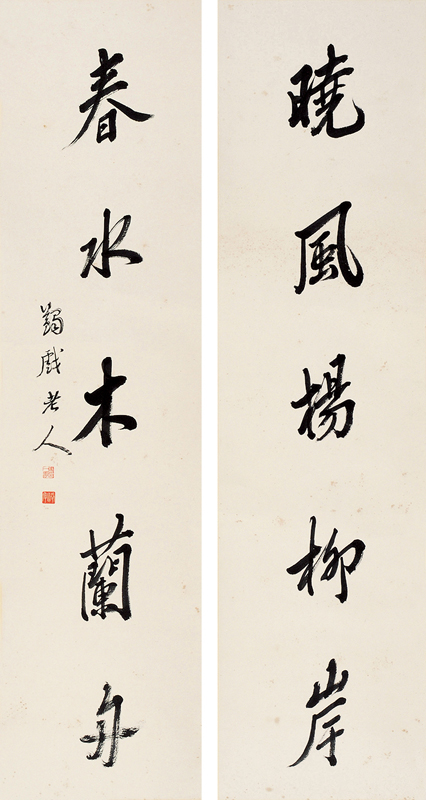 曉風楊柳岸
春水木蘭舟
蠲戲老人